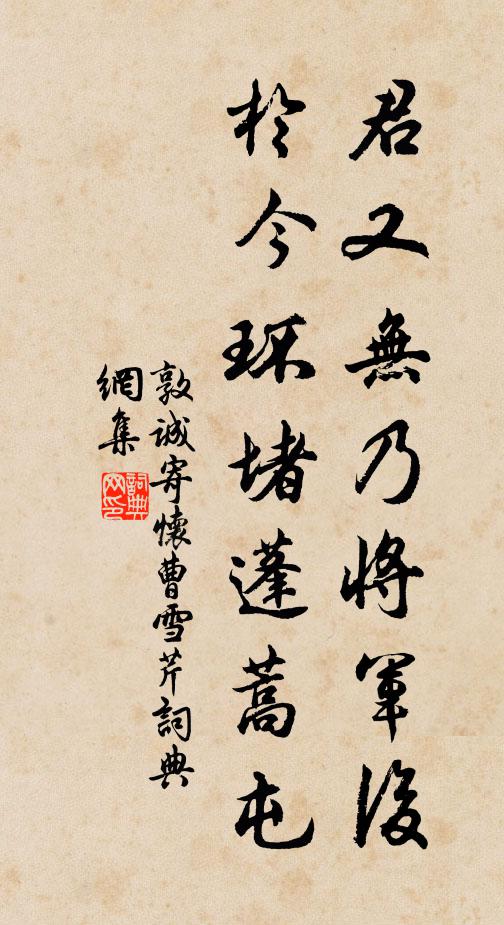 君又無乃將軍後
於今環堵蓬蒿屯
敦誠寄懷曹雪芹詞典
網集
詞典
网印